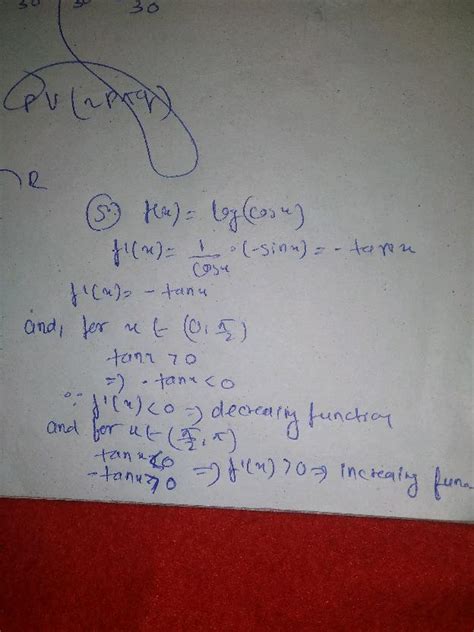 30 30 30
PV(~P∧q)
R
5. f(x) = log(cosx)
f'(x) = 1/cosx · (-sinx) = - tanx
f'(x) = - tanx
and, for x ∈ (0, π/2)
tanx > 0
=) - tanx < 0
∵ f'(x) < 0 => decreasing function
and for x ∈ (π/2, π)
tanx < 0
- tanx > 0 => f'(x) > 0 => increasing func